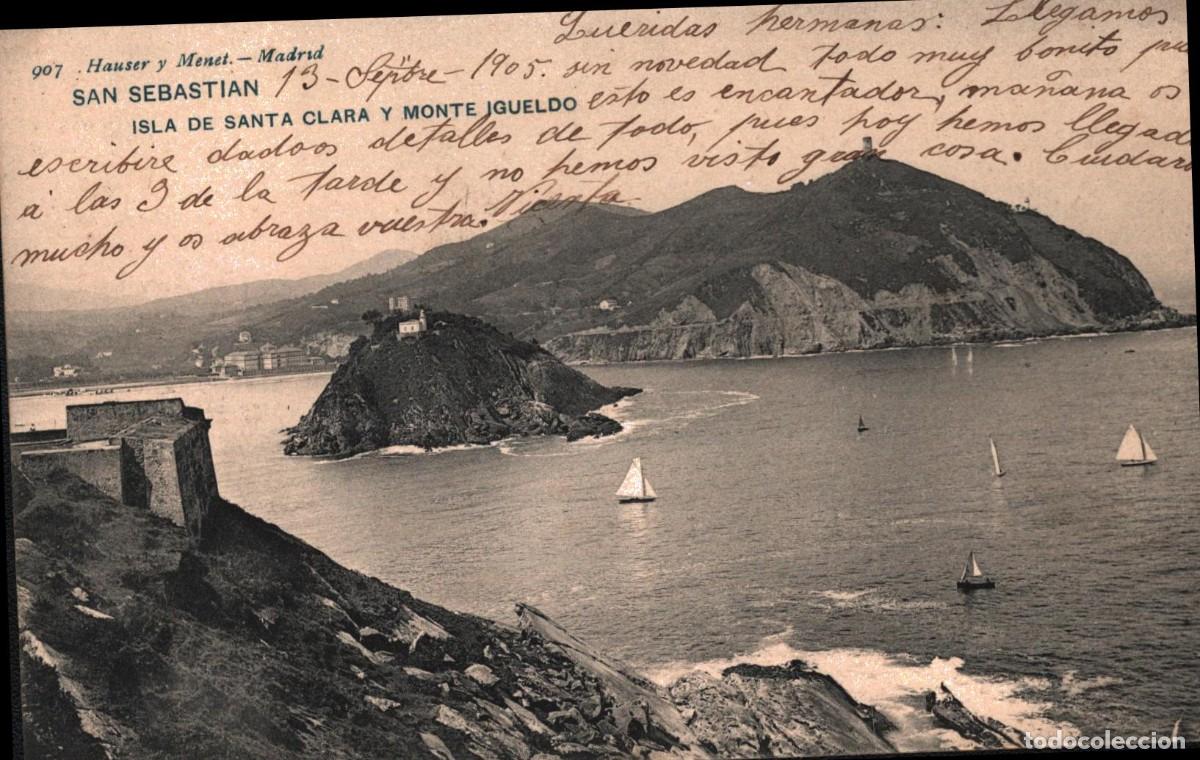 907 Hauser y Menet. — Madrid
SAN SEBASTIAN
ISLA DE SANTA CLARA Y MONTE IGUELDO
13 - Sepbre - 1905.
Queridas hermanas: Llegamos
sin novedad todo muy bonito pu
esto es encantador, mañana os
escribire dadoos detalles de todo, pues hoy hemos llegad
á las 3 de la tarde y no hemos visto gran cosa. Cuidaro
mucho y os abraza vuestra. Vicenta
todocoleccion